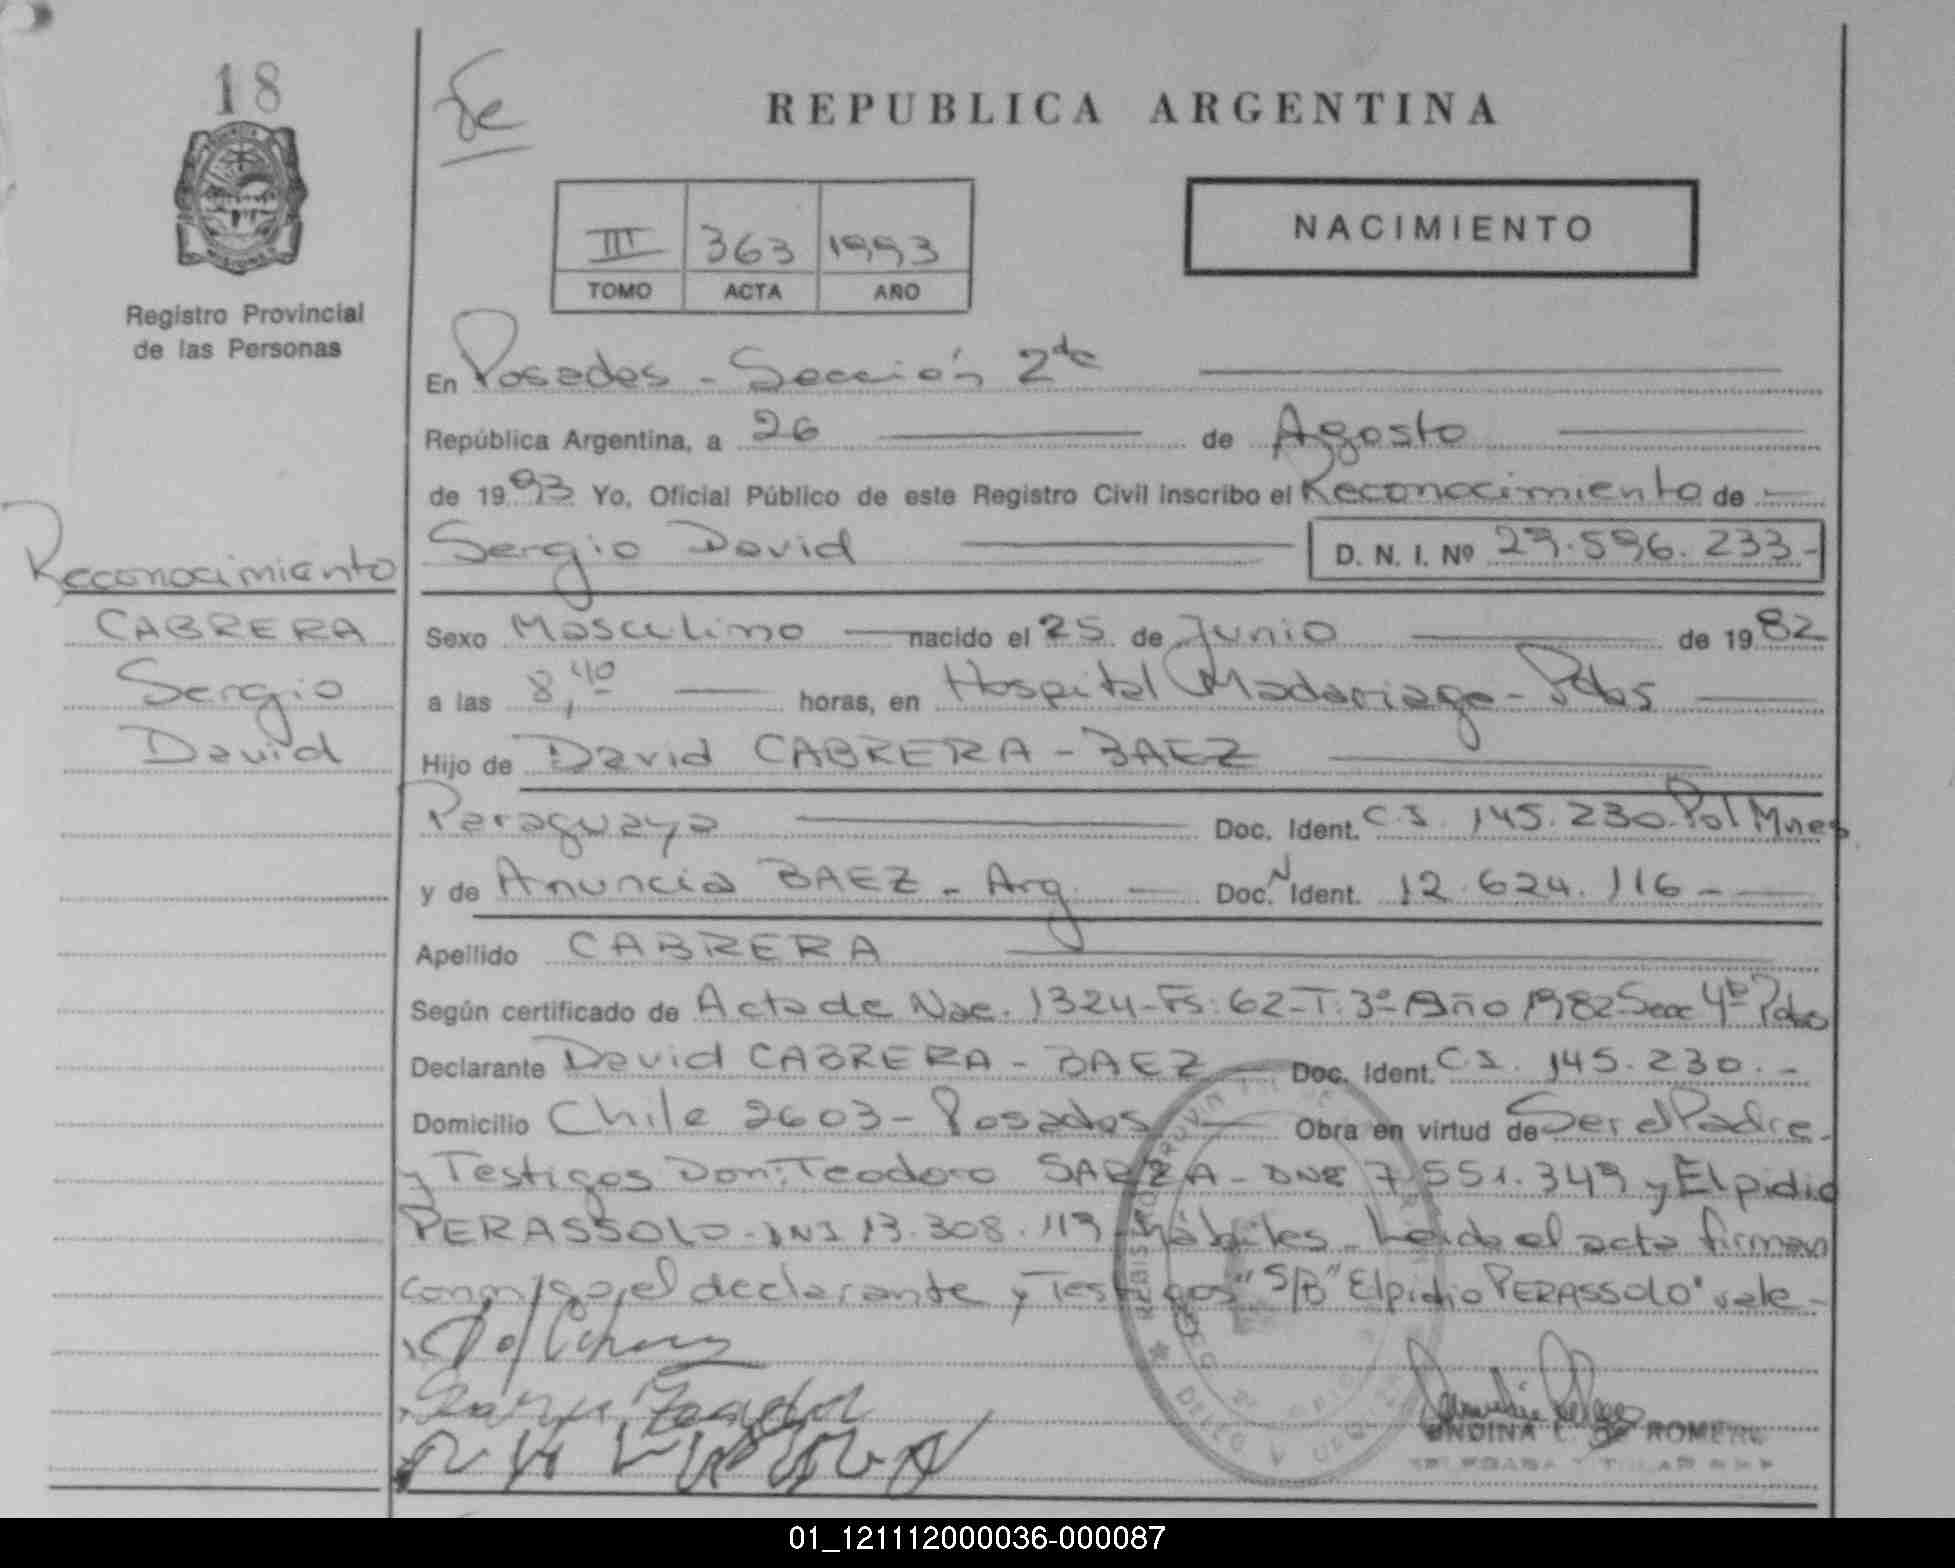 18
Registro Provincial
de las Personas
REPUBLICA ARGENTINA
III 363 1993
TOMO ACTA AÑO
NACIMIENTO
En Posadas - Sección 2da
República Argentina, a 26 de Agosto
de 1993 Yo, Oficial Público de este Registro Civil inscribo el Reconocimiento de
Sergio David D. N. I. Nº 29.596.233-
Reconocimiento
CABRERA
Sergio
David
Sexo Masculino nacido el 25 de Junio de 1982
a las 8,40 horas, en Hospital Madariaga - Pdas
Hijo de David CABRERA - BAEZ
Paraguaya Doc. Ident. C.I. 145.230 Pol Mnes
y de Anuncia BAEZ - Arg. Doc. N Ident. 12.624.116 -
Apellido CABRERA
Según certificado de Acta de Nac. 1324-Fs: 62-T: 3º Año 1982 Secc 4ta Pdas
Declarante David CABRERA - BAEZ Doc. Ident. C.I. 145.230. -
Domicilio Chile 2603 - Posadas Obra en virtud de Ser el Padre.
y Testigos Don: Teodoro 7.551.349 y Elpidio
PERASSOLO - DNI 13.308.119 hábiles. Leida el acta firman
conmigo, el declarante y Testigos "S/B" Elpidio PERASSOLO" vale -
DE ROMERO
01_121112000036-000087